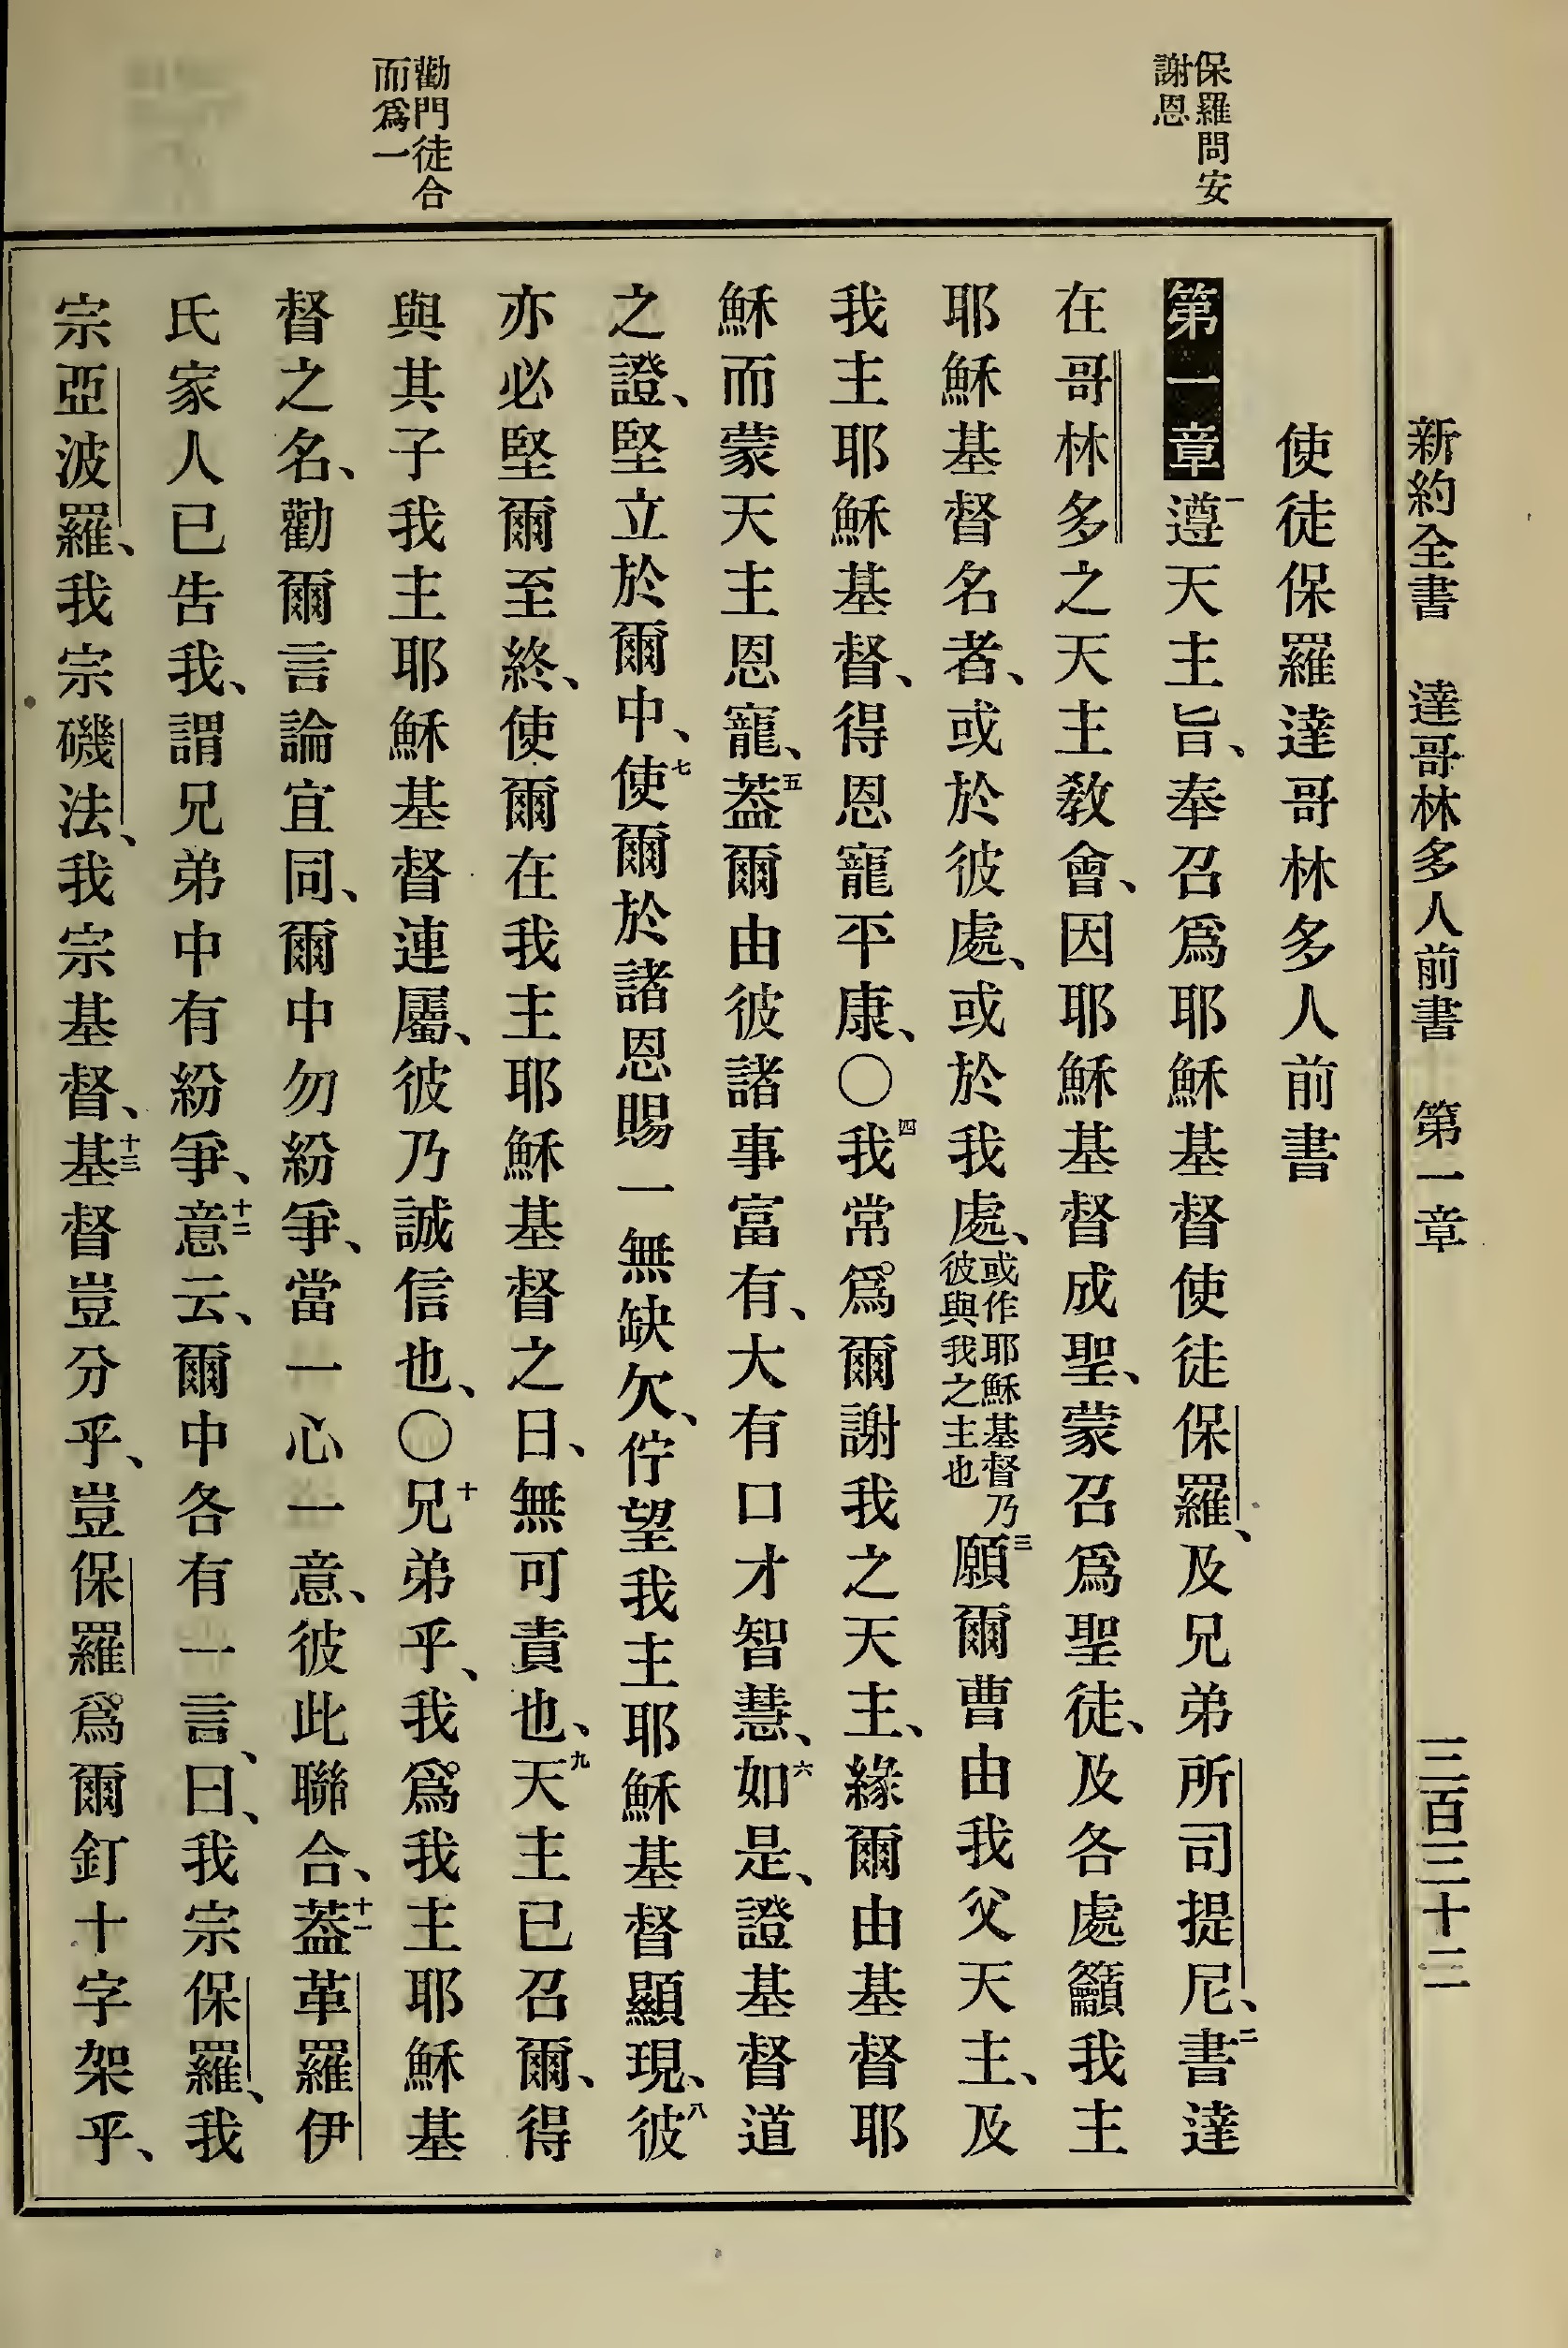 新約全書 達哥林多人前書 第一章 三百三十二
保羅問安
謝恩
勸門徒合
而爲一
使徒保羅達哥林多人前書
第一章一遵天主旨、奉召爲耶穌基督使徒保羅、及兄弟所司提尼、二書達
在哥林多之天主敎會、因耶穌基督成聖、蒙召爲聖徒、及各處籲我主
耶穌基督名者、或於彼處、或於我處、或作耶穌基督乃彼與我之主也三願爾曹由我父天主、及
我主耶穌基督、得恩寵平康、〇四我常爲爾謝我之天主、緣爾由基督耶
穌而蒙天主恩寵、五葢爾由彼諸事富有、大有口才智慧、六如是、證基督道
之證、堅立於爾中、七使爾於諸恩賜一無缺欠、佇望我主耶穌基督顯現、八彼
亦必堅爾至終、使爾在我主耶穌基督之日、無可責也、九天主已召爾、得
與其子我主耶穌基督連屬、彼乃誠信也、〇十兄弟乎、我爲我主耶穌基
督之名、勸爾言論宜同、爾中勿紛爭、當一心一意、彼此聯合、十一葢革羅伊
氏家人已告我、謂兄弟中有紛爭、十二意云、爾中各有一言、曰、我宗保羅、我
宗亞波羅、我宗磯法、我宗基督、十三基督豈分乎、豈保羅爲爾釘十字架乎、